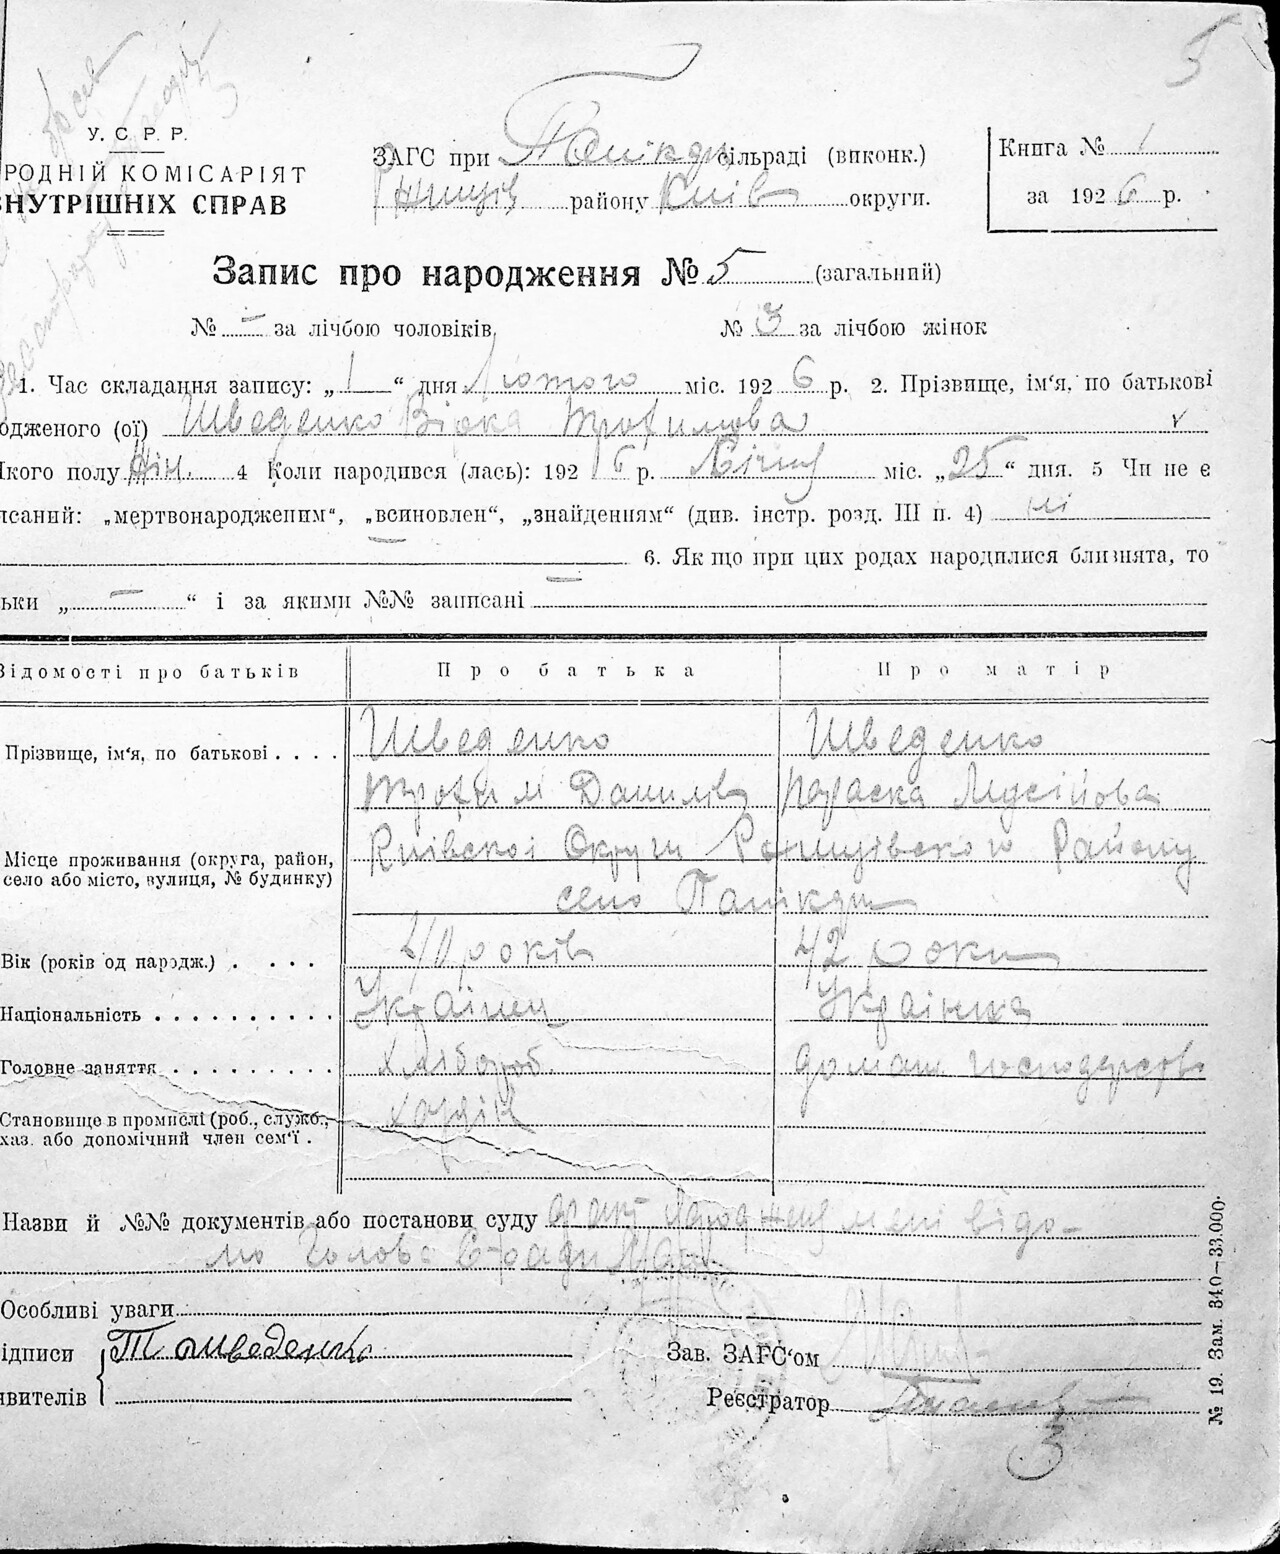 5
У. С. Р. Р.
РОДНІЙ КОМІСАРІЯТ
НУТРІШНІХ СПРАВ
ЗАГС при сільраді (виконк.)
району Київ округи.
Книга № 1
за 1926 р.
Запис про народження № 5 (загальний)
№ – за лічбою чоловіків, № 3 за лічбою жінок
1. Час складання запису: „1“ дня Лютого міс. 1926 р. 2. Прізвище, ім'я, по батькові
одженого (ої) Шведенко Трохимова
якого полу жін. 4 Коли народився (лась): 1926 р. Січня міс. „25“ дня. 5 Чи не є
исаний: „мертвонародженим“, „всиновлен“, „знайденням“ (див. інстр. розд. III п. 4) ні
– 6. Як що при цих родах народилися близнята, то
ьки „ – “ і за якими №№ записані –
Відомості про батьків Про батька Про матір
Прізвище, ім'я, по батькові . . . . Шведенко Шведенко
Трохим Данилів Параска Мусійова
Місце проживання (округа, район, село або місто, вулиця, № будинку) Київскоі Округи Району
село
Вік (років од народж.) . . . . 40 років 42 роки
Національність . . . . . . . . . . Українец Українка
Головне заняття . . . . . . . . . хлібороб. домаш господарство
Становище в промислі (роб., служб.,
хаз. або допомічний член сем'ї . хазяін
Назви й №№ документів або постанови суду факт мені відо-
мо Голова
Особливі уваги
ідписи Т Шведенко Зав. ЗАГС'ом
явителів Реєстратор
3
№ 19. Зам. 340—33.000.